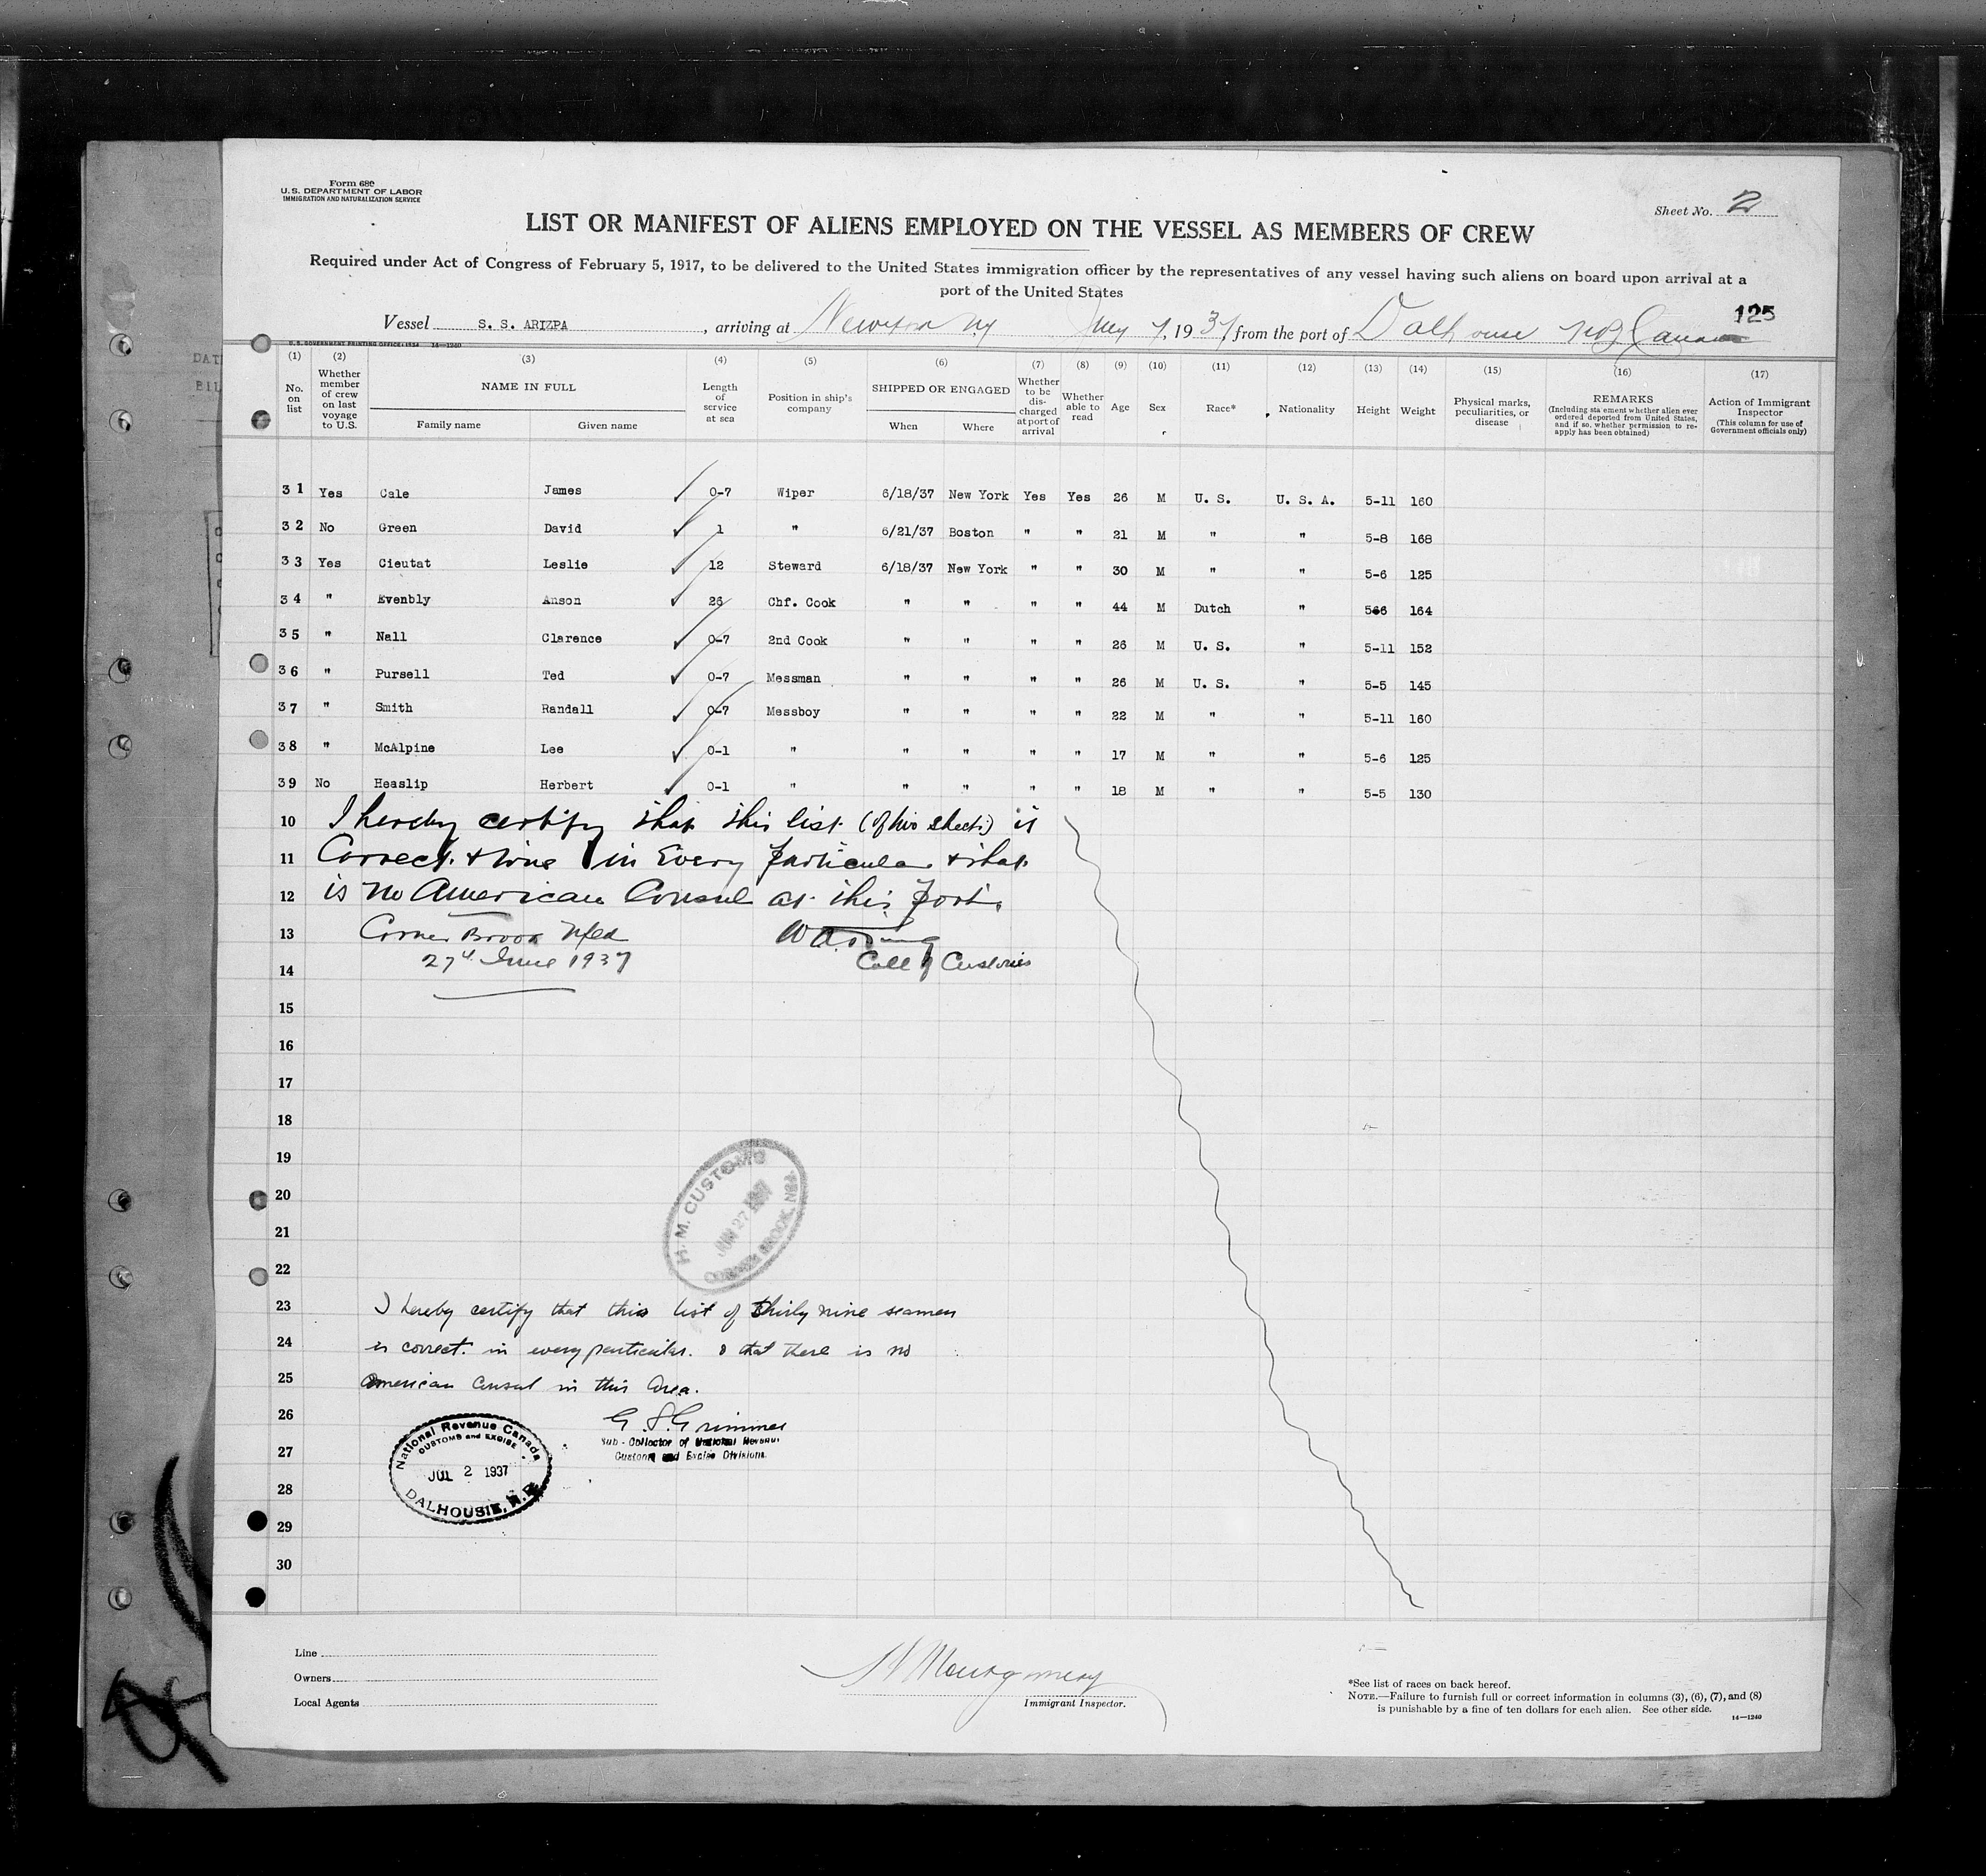 Form 680
U. S. DEPARTMENT OF LABOR
IMMIGRATION AND NATURALIZATION SERVICE
Sheet No. 2
LIST OR MANIFEST OF ALIENS EMPLOYED ON THE VESSEL AS MEMBERS OF CREW
Required under Act of Congress of February 5, 1917, to be delivered to the United States immigration officer by the representatives of any vessel having such aliens on board upon arrival at a
port of the United States
125
Vessel S. S. ARIZPA, arriving at NY July 7, 1937, from the port of Dalhousie NB Canada
U. S. GOVERNMENT PRINTING OFFICE: 1934 14—1240
(1) (2) (3) (4) (5) (6) (7) (8) (9) (10) (11) (12) (13) (14) (15) (16) (17)
No. on list
Whether member of crew on last voyage to U.S.
NAME IN FULL
Family name Given name
Length of service at sea
Position in ship's company
SHIPPED OR ENGAGED
When Where
Whether to be discharged at port of arrival
Whether able to read
Age Sex Race* Nationality Height Weight
Physical marks, peculiarities, or disease
REMARKS
(Including statement whether alien ever ordered deported from United States, and if so, whether permission to re-apply has been obtained)
Action of Immigrant Inspector
(This column for use of Government officials only)
31 Yes Cale James 0-7 Wiper 6/18/37 New York Yes Yes 26 M U. S. U. S. A. 5-11 160
32 No Green David 1 " 6/21/37 Boston " " 21 M " " 5-8 168
33 Yes Cieutat Leslie 12 Steward 6/18/37 New York " " 30 M " " 5-6 125
34 " Evenbly Anson 26 Chf. Cook " " " " 44 M Dutch " 5-6 164
35 " Nall Clarence 0-7 2nd Cook " " " " 26 M U. S. " 5-11 152
36 " Pursell Ted 0-7 Messman " " " " 26 M U. S. " 5-5 145
37 " Smith Randall 0-7 Messboy " " " " 22 M " " 5-11 160
38 " McAlpine Lee 0-1 " " " " " 17 M " " 5-6 125
39 No Heaslip Herbert 0-1 " " " " " 18 M " " 5-5 130
10 I hereby certify that this list (of two sheets) is
11 Correct & true in Every particular & that
12 is no American Consul at this port.
13 Corner Brook Nfld
14 27th June 1937 Coll of Customs
15
16
17
18
19
20
21
22
H. M. CUSTOMS
JUN 27 1937
CORNER BROOK, NFLD.
23 I hereby certify that this list of Thirty nine seamen
24 is correct in every particular. & that there is no
25 American Consul in this area.
26 G S Grimmer
27 Sub-Collector of National Revenue
Customs and Excise Divisions.
28
29
30
National Revenue Canada
CUSTOMS and EXCISE
JUL 2 1937
DALHOUSIE, N.B.
Line
Owners
Local Agents
Montgomery
Immigrant Inspector.
*See list of races on back hereof.
NOTE.—Failure to furnish full or correct information in columns (3), (6), (7), and (8)
is punishable by a fine of ten dollars for each alien. See other side.
14—1240